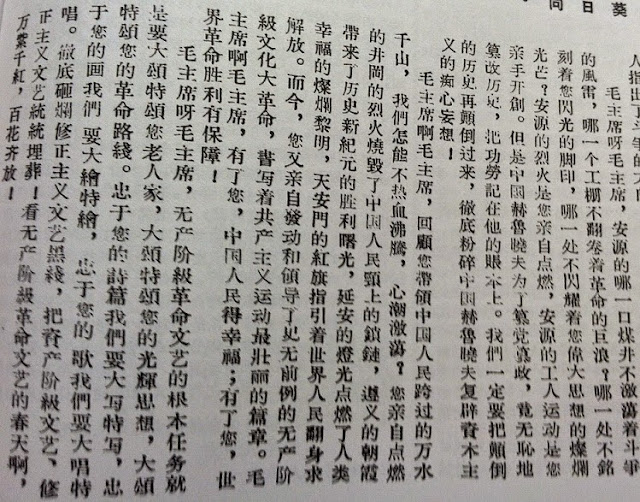 葵
日
同
人指出了斗爭的
毛主席呀毛主席，安源的哪一口煤井不激蕩着斗爭
的風雷，哪一个工棚不翻卷着革命的巨浪？哪一处不銘
刻着您閃光的脚印，哪一处不閃耀着您偉大思想的燦爛
光芒？安源的烈火是您亲自点燃，安源的工人运动是您
亲手开創。但是中國赫魯曉夫为了篡党篡政，竟无恥地
篡改历史，把功勞記在他的賬本上。我們一定要把顛倒
的历史再顛倒过来，徹底粉碎中國赫魯曉夫复辟資本主
义的痴心妄想！
毛主席啊毛主席，回顧您帶領中国人民跨过的万水
千山，我們怎能不热血沸騰，心潮激蕩？您亲自点燃
的井岡的烈火燒毀了中国人民頸上的鎖鏈，遵义的朝霞
帶来了历史新紀元的胜利曙光，延安的燈光点燃了人类
幸福的燦爛黎明，天安門的紅旗指引着世界人民翻身求
解放。而今，您又亲自發动和領导了史无前例的无产阶
級文化大革命，書写着共产主义运动最壯丽的篇章。毛
主席啊毛主席，有了您，中国人民得幸福；有了您，世
界革命胜利有保障！
毛主席呀毛主席，无产阶級革命文艺的根本任务就
是要大頌特頌您老人家，大頌特頌您的光輝思想，大頌
特頌您的革命路綫。忠于您的詩篇我們要大写特写，忠
于您的画我們要大繪特繪，忠于您的歌我們要大唱特
唱。徹底砸爛修正主义文艺黑綫，把資产阶級文艺、修
正主义文艺統統埋葬！看无产阶級革命文艺的春天啊，
万紫千紅，百花齐放！